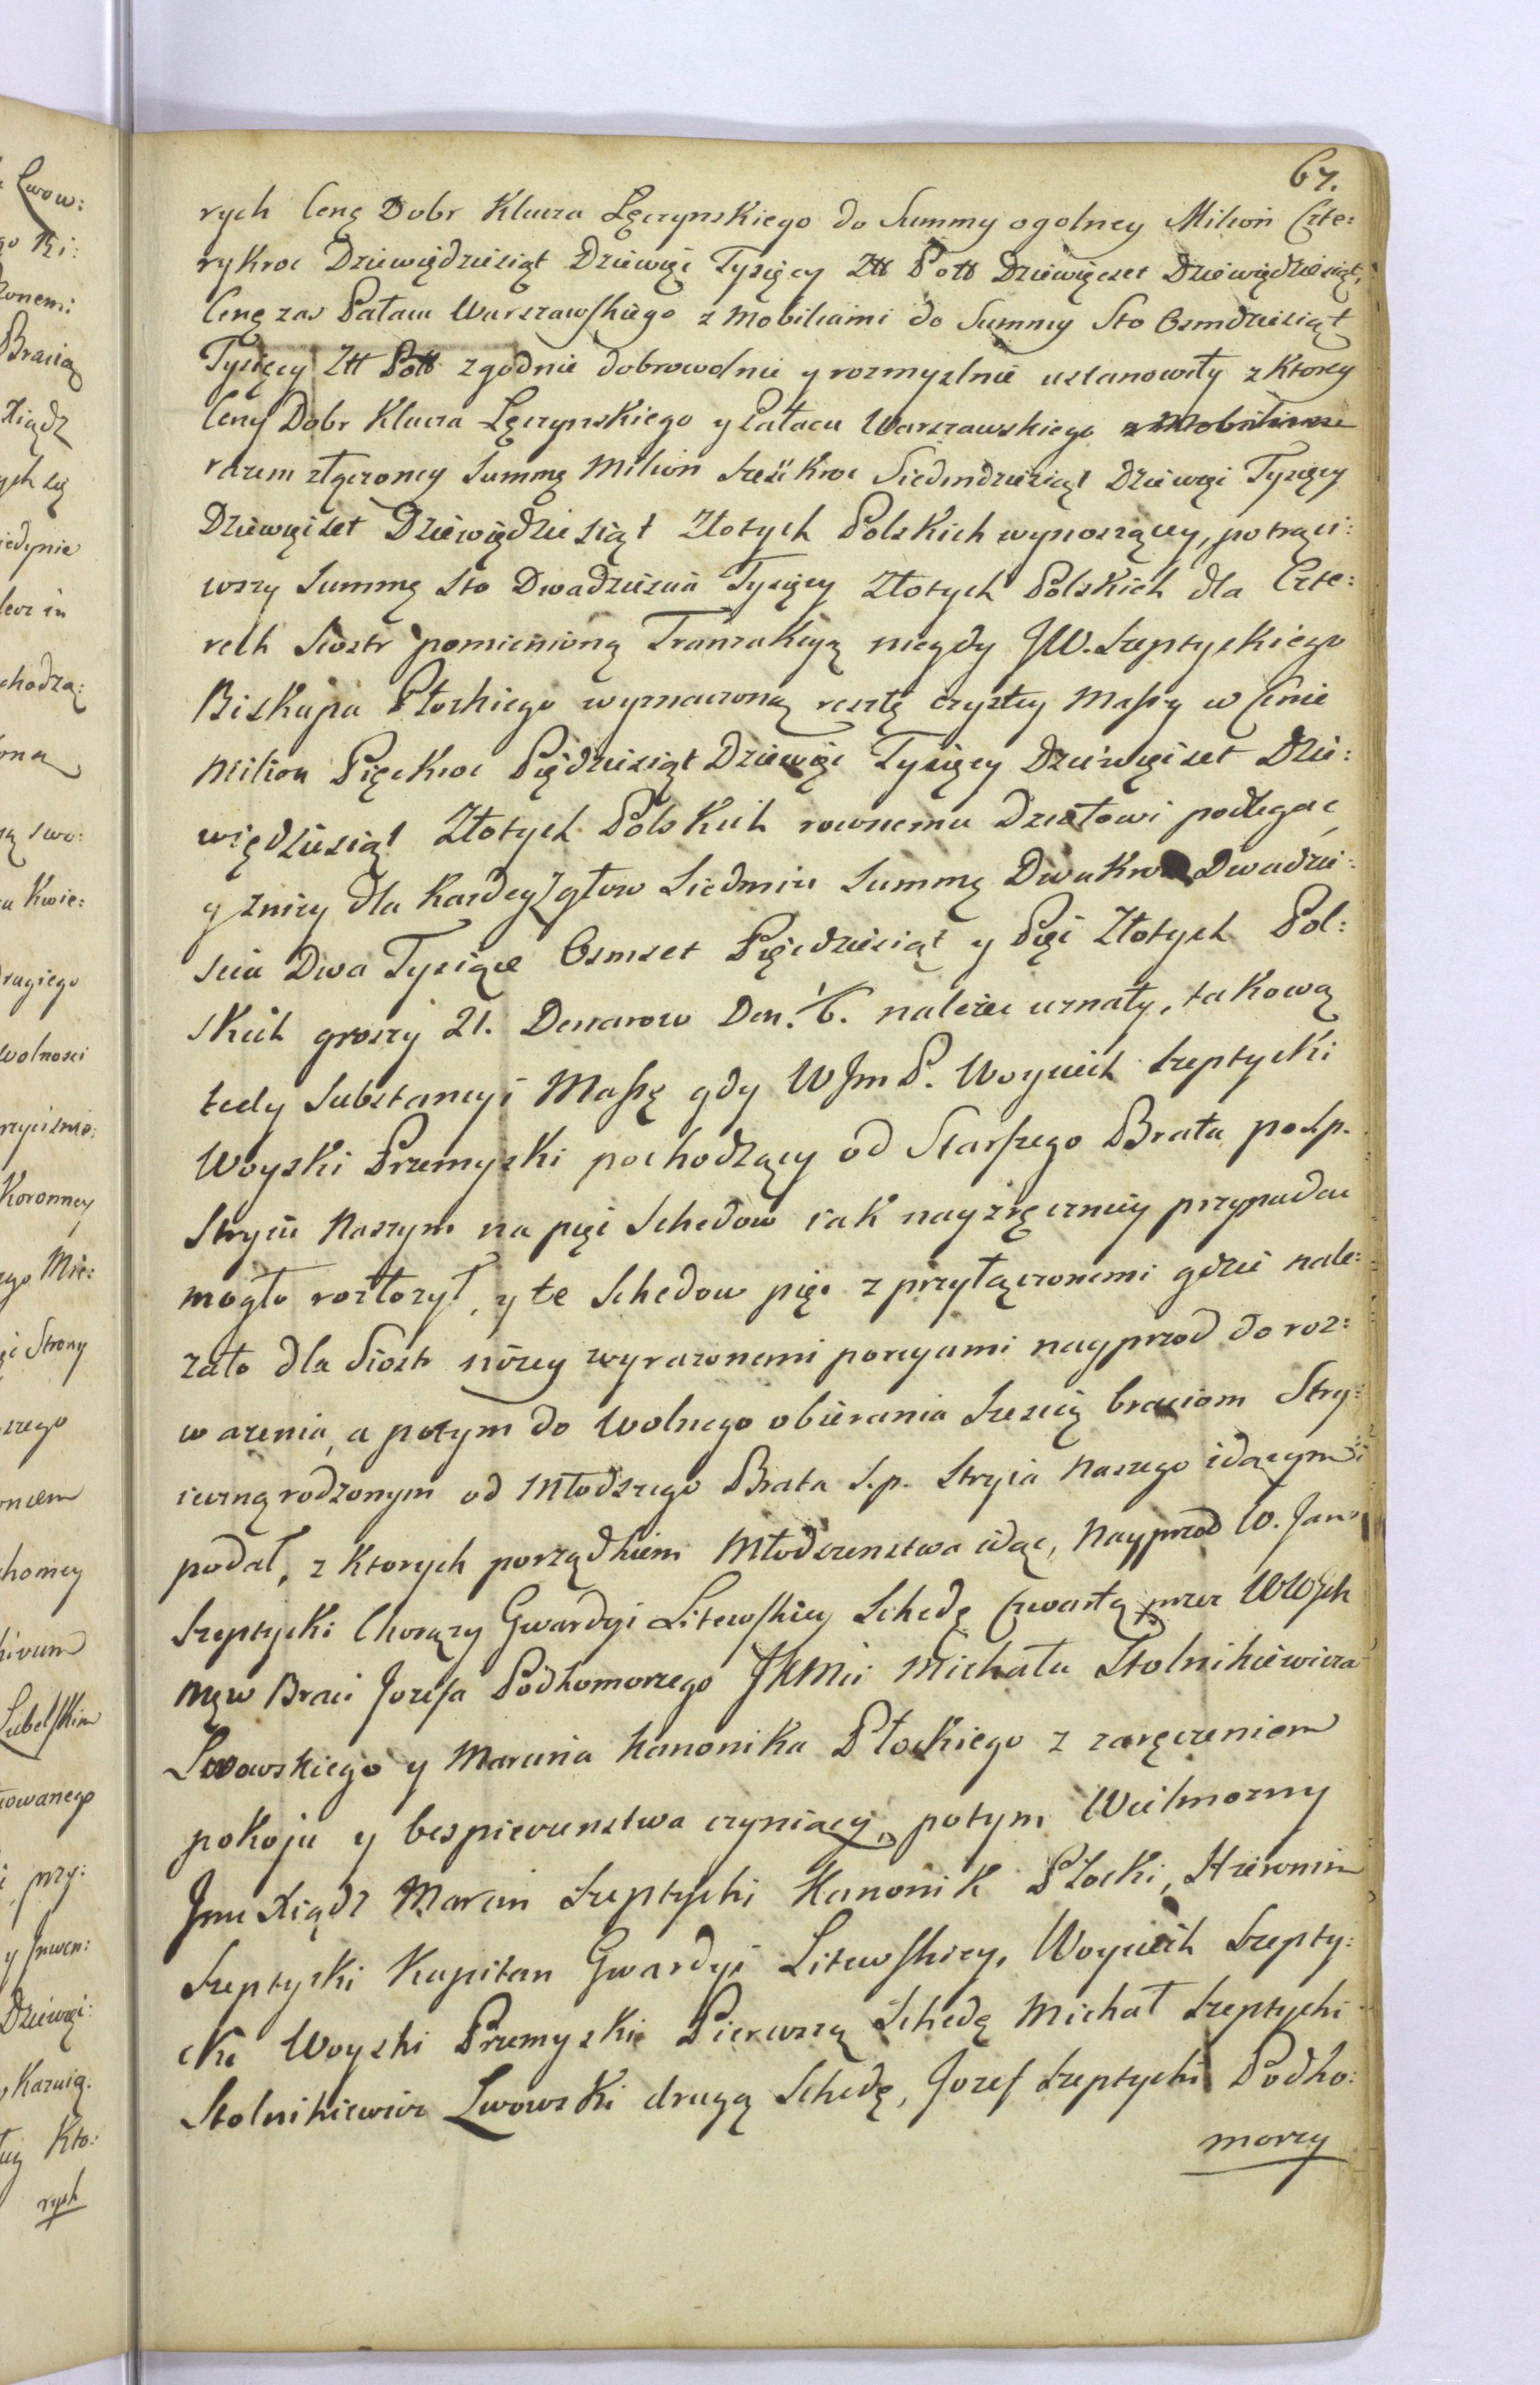 67.
rych Cenę Dobr Klucza Łęczynskiego do Summy ogolney Milion Czte:
rykroc Dziewiędziesiąt Dziewięc Tysięcy Złł Poll Dziewięcset Dziewiędziesiąt,
Cenę zas Pałacu Warszawskiego z Mobiliami do Summy Sto Osmdziesiąt
Tysięcy Złł Poll zgodnie dobrowolnie y rozmyslnie ustanowiły z ktorey
Ceny Dobr Klucza Łęczynskiego y Pałacu Warszawskiego
razem złączoney Summę Milion Sześckroc Siedmdziesiąt Dziewięc Tysięcy
Dziewięcset Dziewiędziesiąt Złotych Polskich wynoszącey, potrąci:
wszy Summę Sto Dwadziescia Tysięcy Złotych Polskich dla Czte:
rech Siostr pomienioną Tranzakcyą niegdy JW. Szeptyckiego
Biskupa Płockiego wyznaczoną resztę czystey Massy w Cenie
Milion Pięckroc Pięдziesiąt Dziewięc Tysięcy Dziewięcset Dzie:
więdziesiąt Złotych Polskich rownemu Działowi podlegac
y zniey dla Kazdey z głow Siedmiu Summę Dwakroc Dwadzie:
scia Dwa Tysiące Osmset Pięcdziesiąt y Pięc Złotych Pol:
skich groszy 21. Denarow Den. 1/6. nalezec uznały, takową
tedy Substancyi Massę gdy WJm P. Woyciech Szeptycki
Woyski Przemyski pochodzący od Starszego Brata po S.p.
Stryiu Naszym na pięc Schedow iak nayzręczniey przypadac
mogło rozłozył, y te Schedow pięc z przyłączonemi gdzie nale:
zało dla Siostr nizey wyrazonemi porcyami nayprzod do roz:
wazenia, a potym do Wolnego obierania Szescią braciom Stry:
ieczną rodzonym od Młodszego Brata S.p. Stryia Naszego idącym
podał, z Ktorych porządkiem Młodszenstwa idąc, Nayprzod W. Jan
Szeptycki Chorązy Gwardyi Litewskiey Schedę Czwartą przez WWJch
Mcw Braci Jozefa Podkomorzego JKMci Michała Stolnikiewicza
Lwowskiego y Marcina Kanonika Płockiego z zaręczeniem
pokoju y bespieczenstwa czyniący, potym Wielmozny
Jmc Xiądz Marcin Szeptycki Kanonik Płocki, Hieronim
Szeptycki Kapitan Gwardyi Litewskiey, Woyciech Szepty:
cki Woyski Przemyski Pierwszą Schedę Michał Szeptycki
Stolnikiewicz Lwowski drugą Schedę, Jozef Szeptycki Podko:
morzy